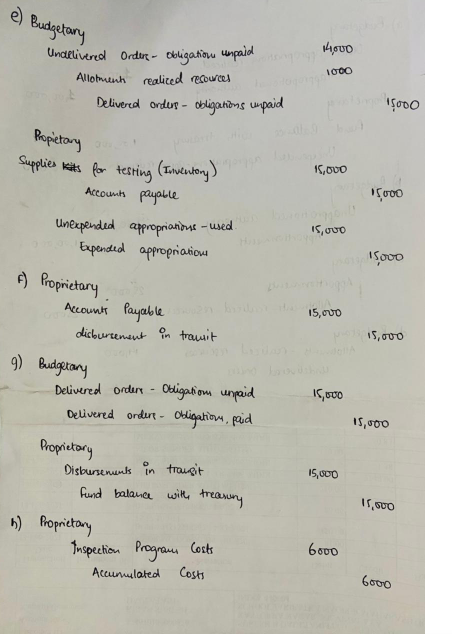 e) Budgetary
Undelivered Orders - Obligations unpaid 14,000
Allotments realized resources 1000
Delivered orders - obligations unpaid 15,000
Propietary
Supplies for testing (Inventory) 15,000
Accounts payable 15,000
Unexpended appropriations - used 15,000
Expended appropriations 15,000
f) Proprietary
Accounts Payable 15,000
disbursement in transit 15,000
g) Budgetary
Delivered orders - Obligations unpaid 15,000
Delivered orders - Obligations, paid 15,000
Proprietary
Disbursements in transit 15,000
Fund balance with treasury 15,000
h) Proprietary
Inspection Program Costs 6000
Accumulated Costs 6000